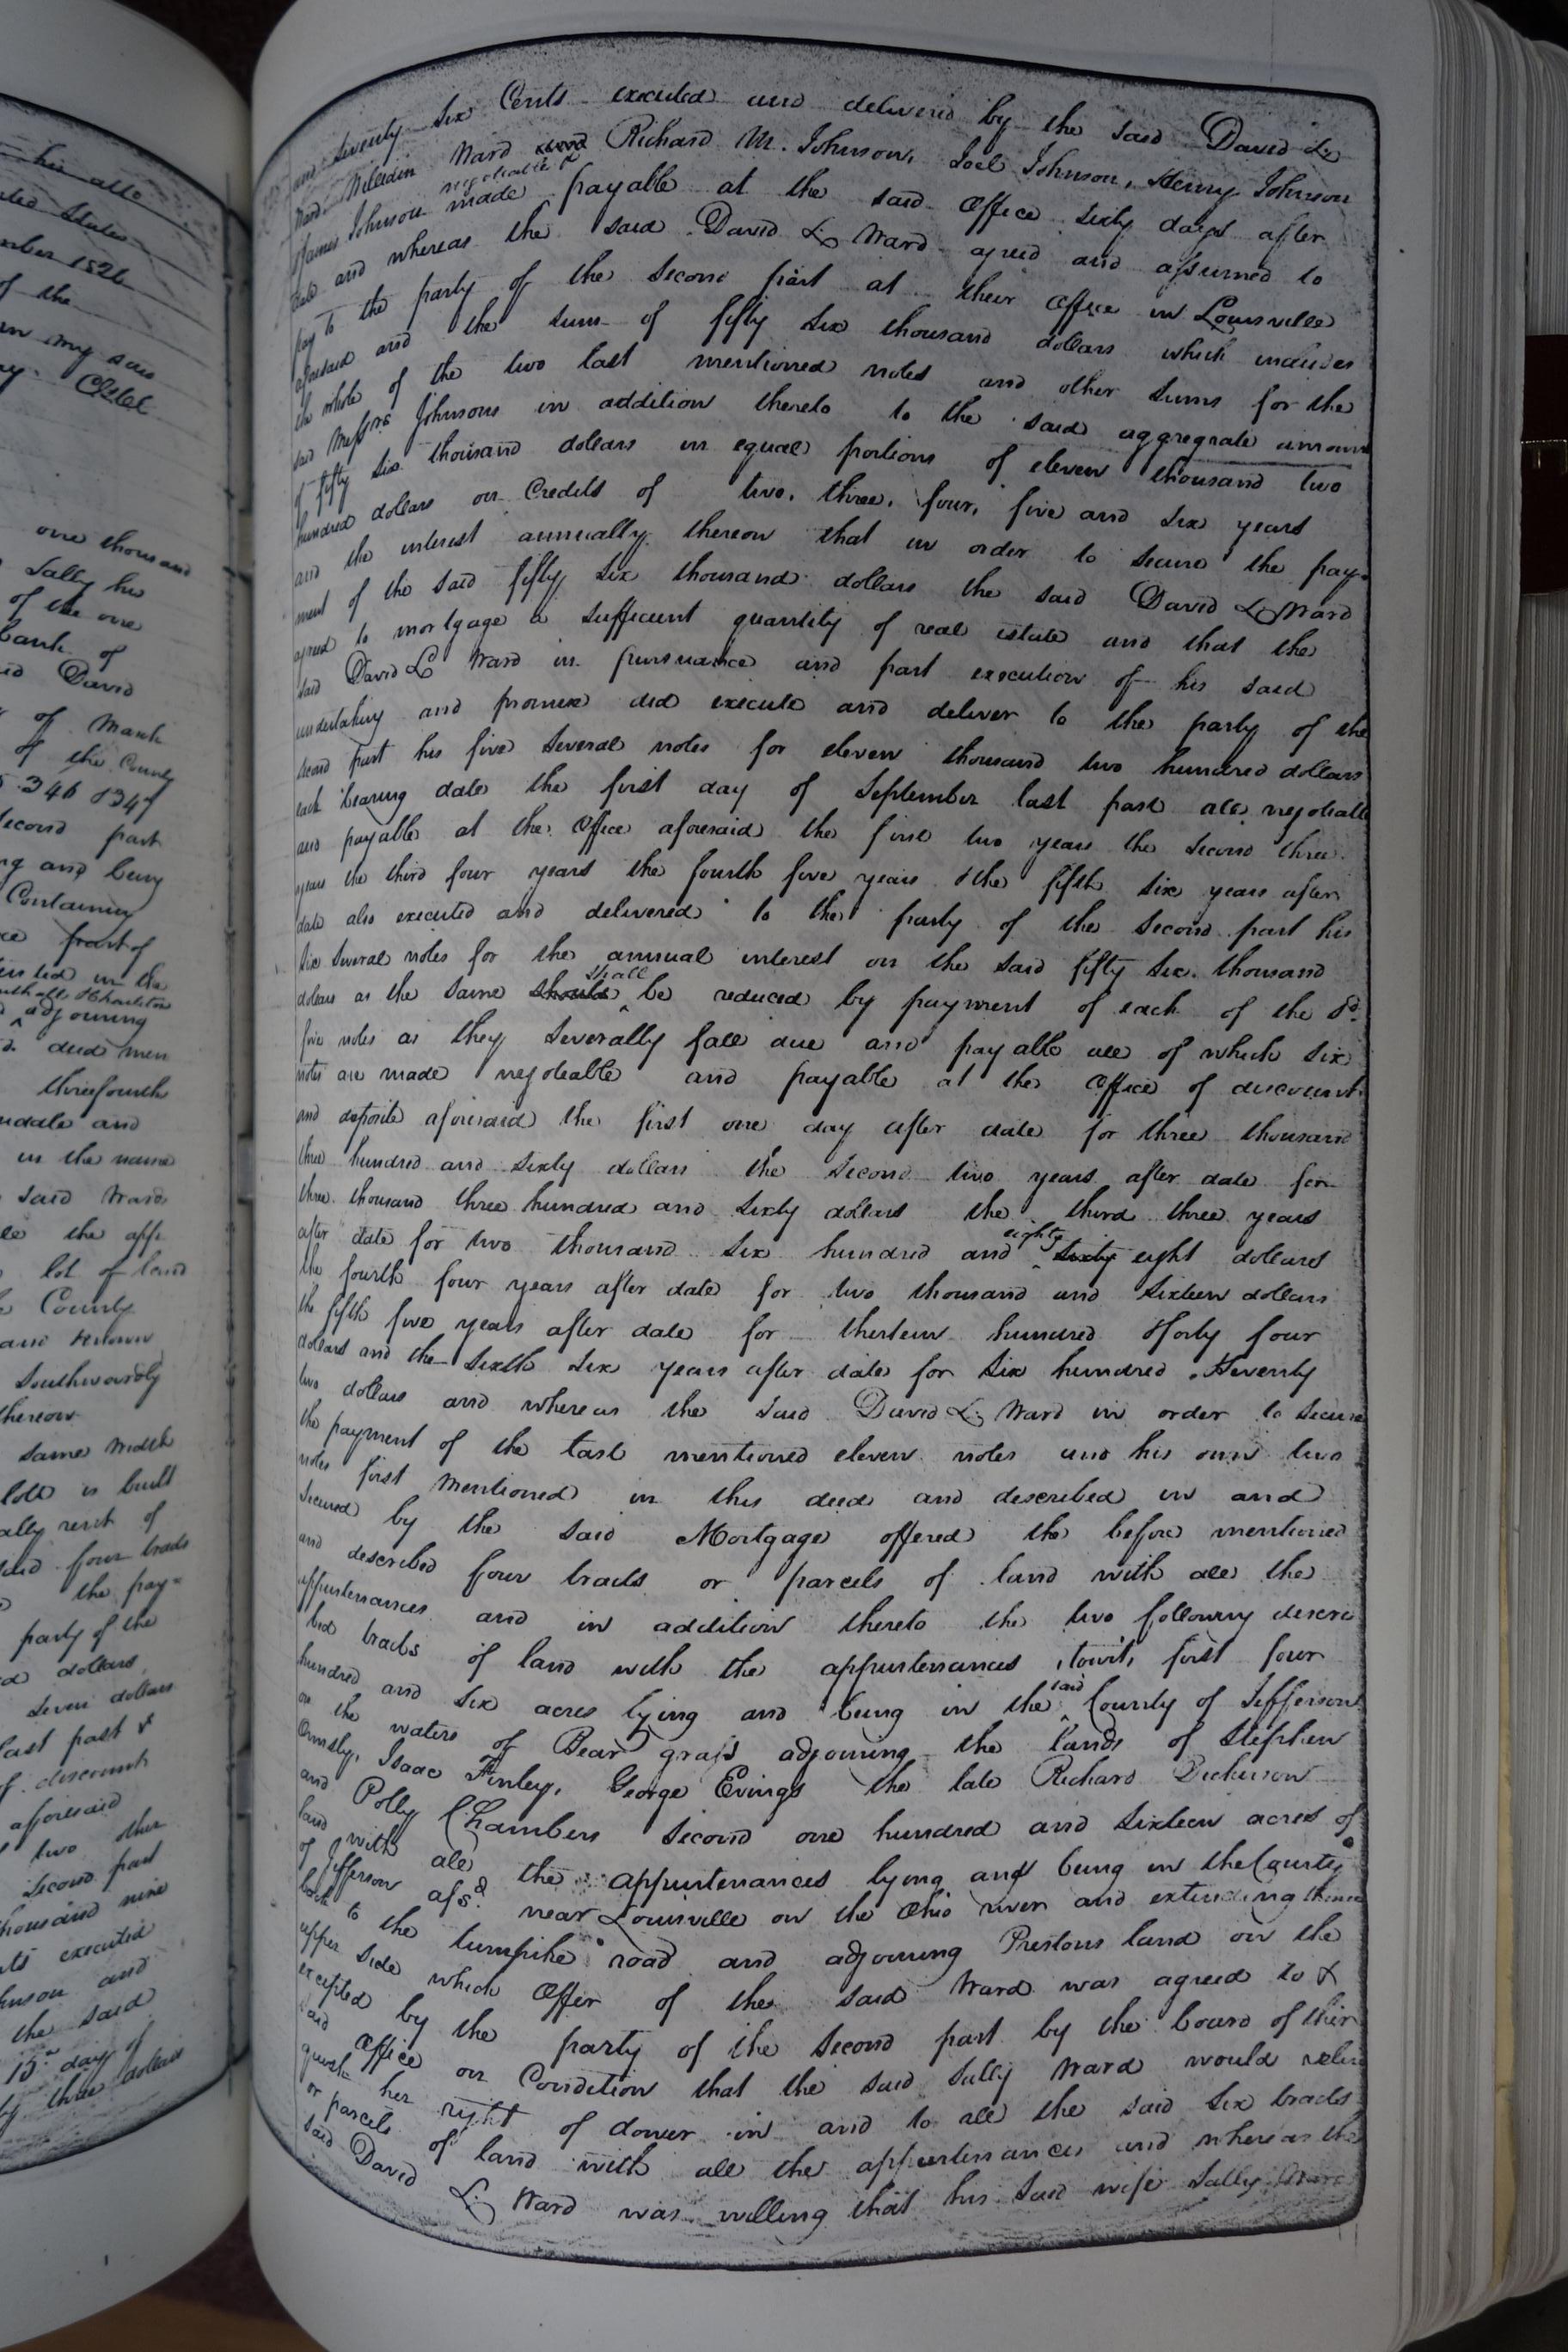 his atto
ted States
mber 1826
of the
in my
one thousand
Sally his
of the one
bank of
David
of March
of the County
346 & 347
second part
and being
Containing
part of
in the
adjoining
deed
three fourth
and
in the name
said Ward
the
lot of land
County
Known
Southwardly
thereon
same width
lott is built
rent of
said four tracts
the pay=
party of the
dollars
seven dollars
last past &
of discount
aforesaid
two other
second part
thousand nine
executed
Johnson and
the said
15th day of
three dollars
and seventy six Cents executed and delivered by the said David L.
Ward Willedin Ward Richard M. Johnson, Joel Johnson, Henry Johnson
James Johnson made negotiable & payable at the said office sixty days after
date and whereas the said David L. Ward agreed and assumed to
pay to the party of the second part at their office in Louisville
aforesaid and the sum of fifty six thousand dollars which includes
the whole of the two last mentioned notes and other sums for the
said Messrs Johnsons in addition thereto to the said aggregate amount
of fifty six thousand dollars in equal portions of eleven thousand two
hundred dollars on Credits of two, three, four, five and six years
and the interest annually thereon that in order to secure the pay=
ment of the said fifty six thousand dollars the said David L. Ward
agreed to mortgage a sufficient quantity of real estate and that the
said David L Ward in pursuance and part execution of his said
undertaking and promise did execute and deliver to the party of the
second part his five several notes for eleven thousand two hundred dollars
each bearing date the first day of September last past all negotiable
and payable at the office aforesaid the first two years the second three
years the third four years the fourth five years & the fifth six years after
date also executed and delivered to the party of the second part his
six several notes for the annual interest on the said fifty six thousand
dollars as the same should shall be reduced by payment of each of the sd.
five notes as they severally fall due and payable all of which six
notes are made negotiable and payable at the office of discount
and deposite aforesaid the first one day after date for three thousand
three hundred and sixty dollars the second two years after date for
three thousand three hundred and sixty dollars the third three years
after date for two thousand six hundred and sixty eighty eight dollars
the fourth four years after date for two thousand and sixteen dollars
the fifth five years after date for thirteen hundred & forty four
dollars and the sixth six years after date for six hundred & seventy
two dollars and whereas the said David L. Ward in order to secure
the payment of the last mentioned eleven notes and his own two
notes first mentioned in this deed and described in and
secured by the said Mortgage offered the before mentioned
and described four tracts or parcels of land with all the
appurtenances and in addition thereto the two following descri
bed tracts of land with the appurtenances, towit, first four
hundred and six acres lying and being in the said County of Jefferson
on the waters of Bear grass adjoining the lands of Stephen
Ormsby, Isaac Finley, George Evings the late Richard Dickinson
and Polly Chambers second one hundred and sixteen acres of
land with all the appurtenances lying and being in the County
of Jefferson afsd. near Louisville on the Ohio river and extending thence
back to the turnpike road and adjoining Prestons land on the
upper side which Offer of the said Ward was agreed to &
excepted by the party of the second part by the board of their
said Office on Condition that the said Sally Ward would relin
quish her right of dower in and to all the said six tracts
or parcels of land with all the appurtenances and whereas the
said David L. Ward was willing that his said wife Sally Ward